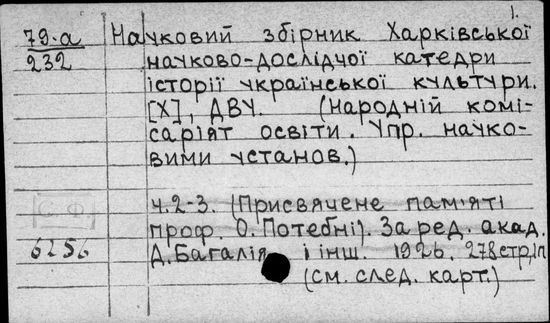 1.
79-а Науковий збірник Харківської
232 науково-дослідчої катедри
історії української культури.
[Х], ДВУ. (Народній комі-
саріят освіти. Упр. науко-
вими установ.)
ч. 2-3. (Присвячене пам'яті
[С.Ф.] проф. О. Потебні). За ред. акад.
6256 Д. Багалія і інш. 1926. 278стр,
(см. след. карт.)